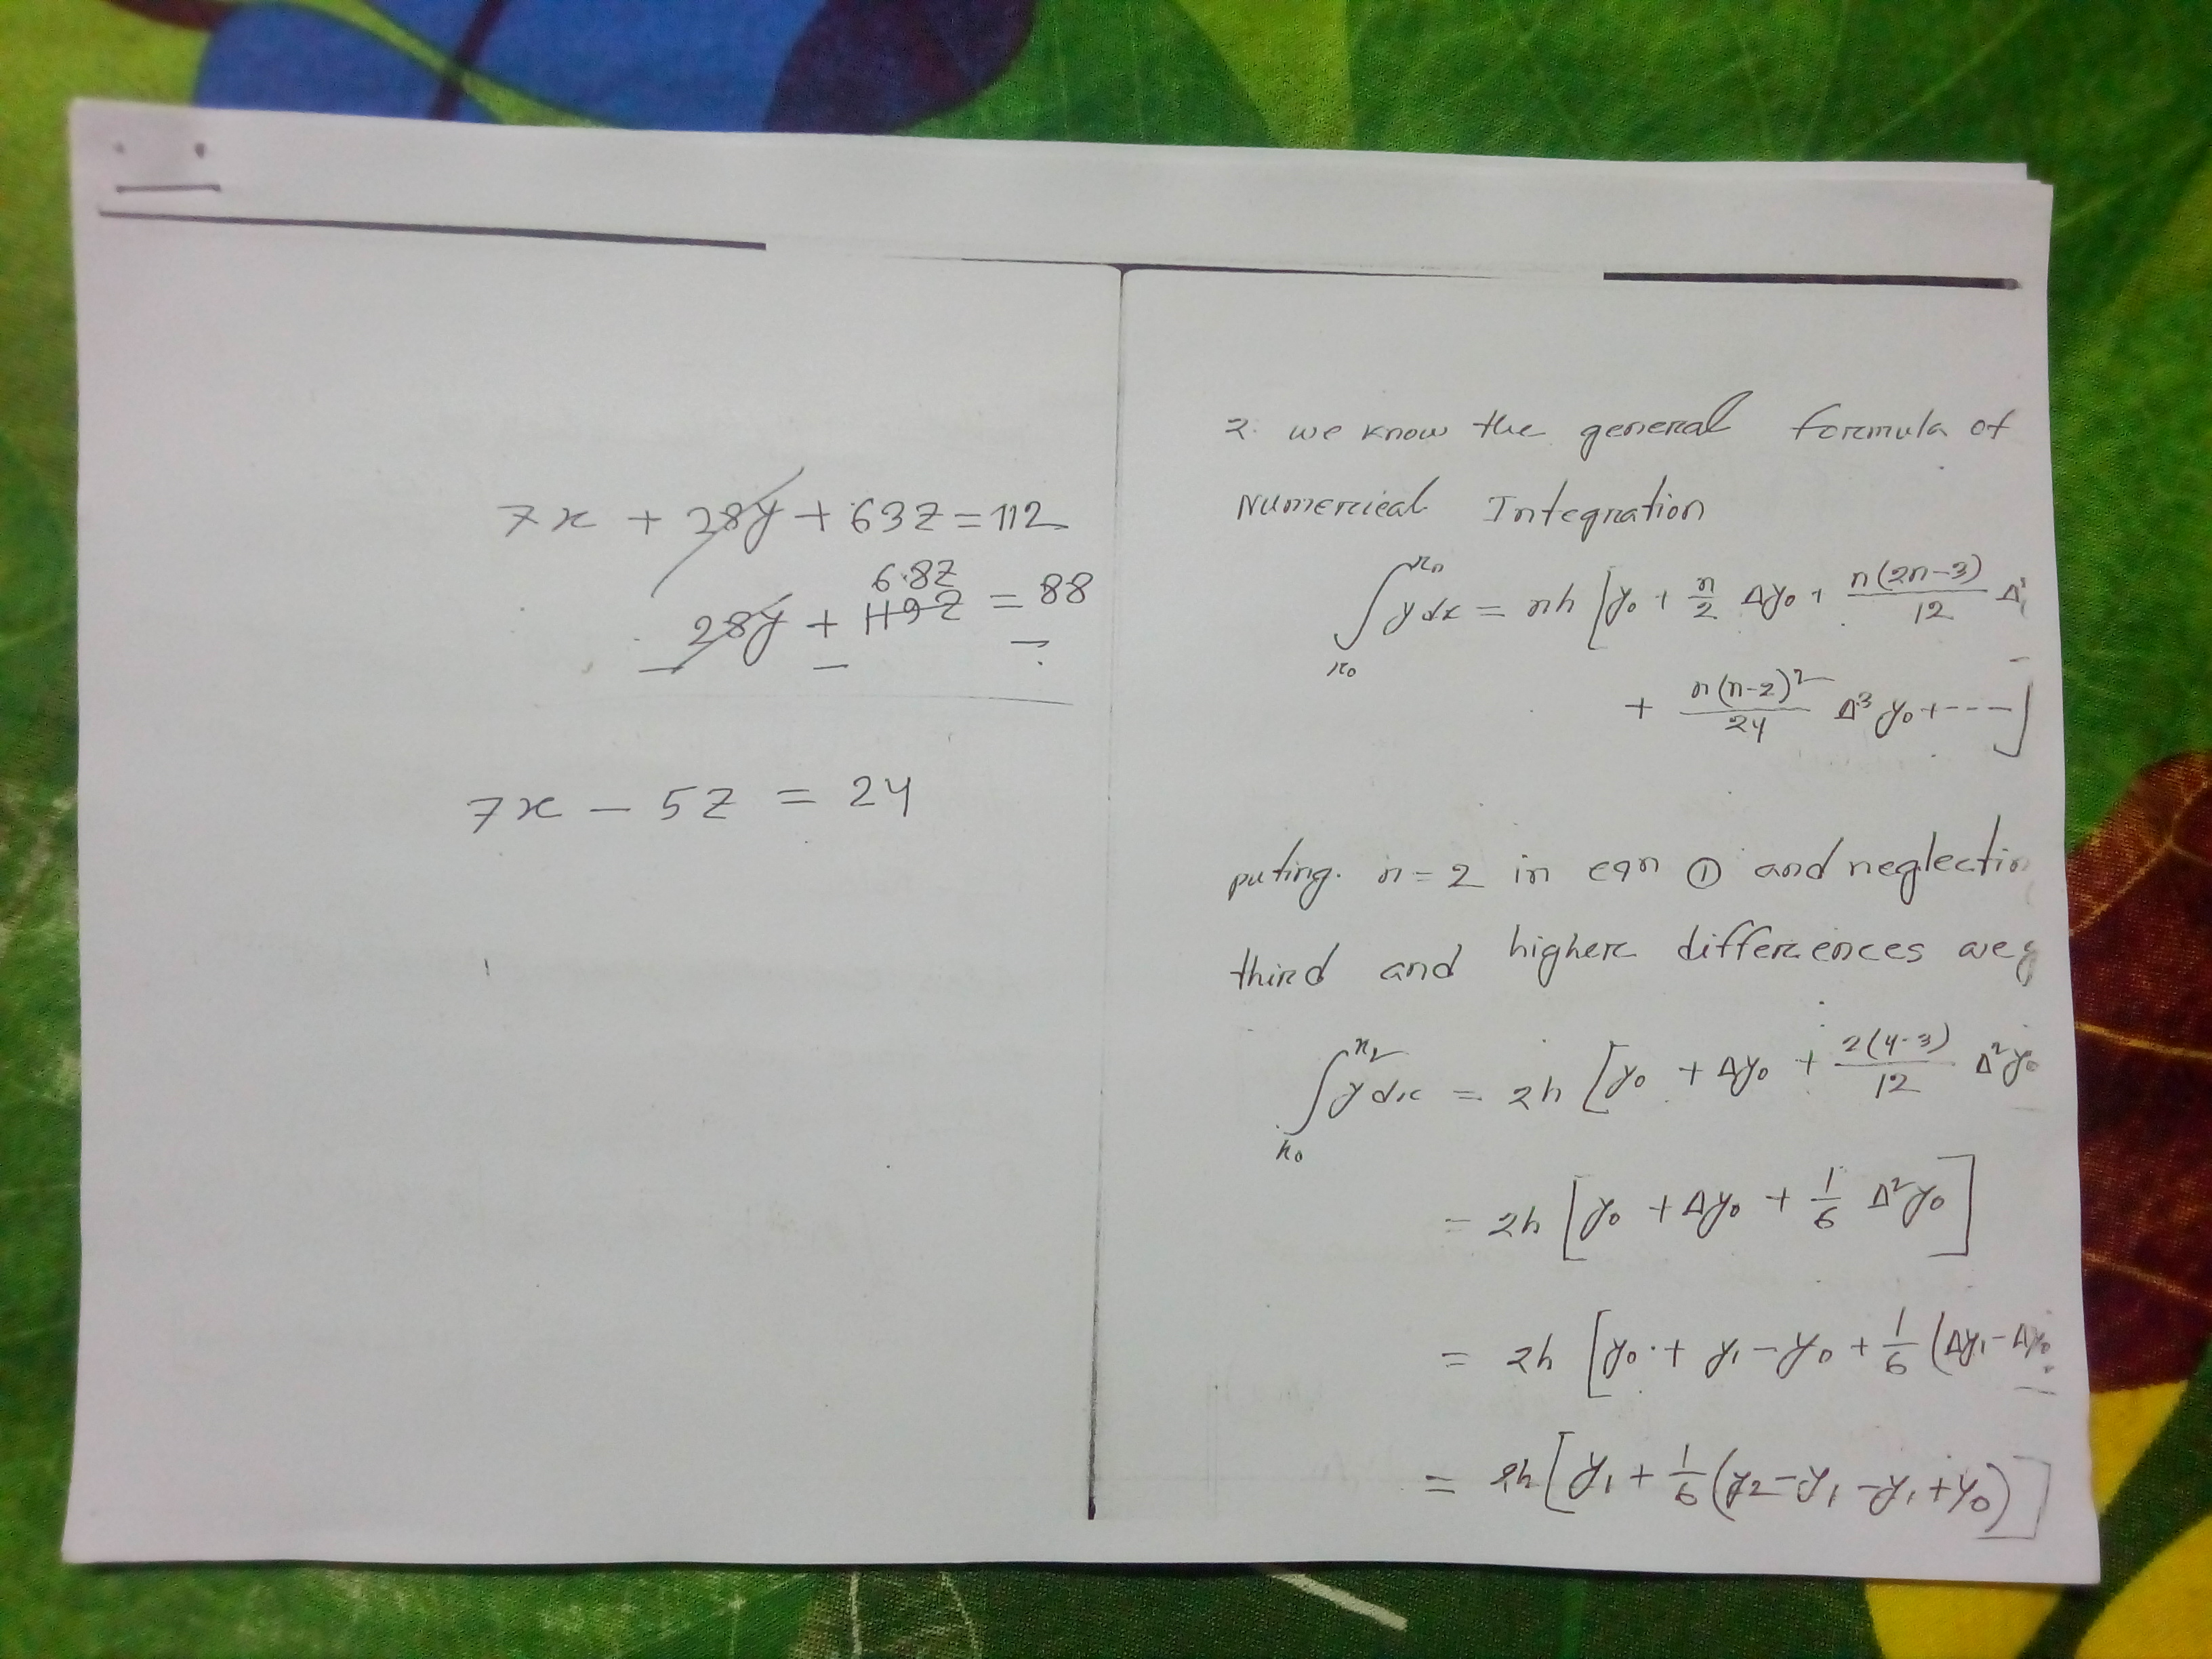 7x + 28y + 63z = 112
68z
28y + 119z = 88
7x - 5z = 24
2. we know the general formula of
Numerical Integration
∫_{x₀}^{xₙ} y dx = nh [y₀ + n/2 Δy₀ + n(2n-3)/12 Δ²
+ n(n-2)²/24 Δ³y₀ + ---]
puting. n = 2 in eqn ① and neglectin
third and higher differences we g
∫_{x₀}^{x₂} y dx = 2h [y₀ + Δy₀ + 2(4-3)/12 Δ²y₀
= 2h [y₀ + Δy₀ + 1/6 Δ²y₀]
= 2h [y₀ + y₁ - y₀ + 1/6 (Δy₁ - Δy₀
= 2h [y₁ + 1/6 (y₂ - y₁ - y₁ + y₀)]